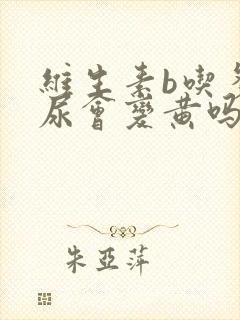 維生素b喫多
尿會變黄吗
朱亞萍